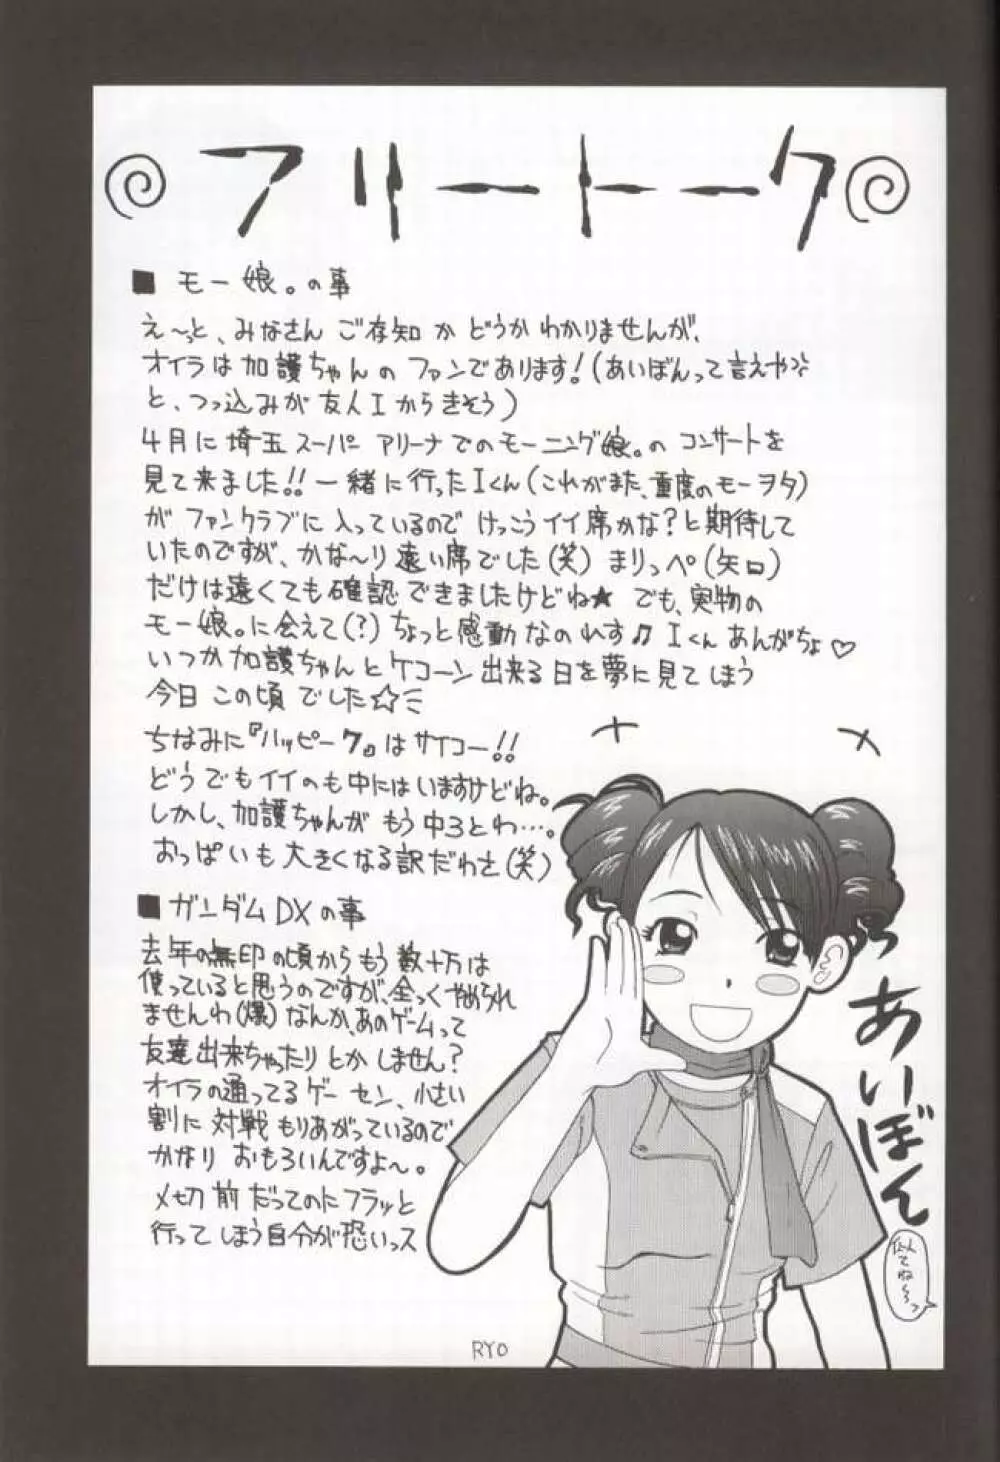 フリートーク
■ モー娘。の事
え〜っと、みなさん ご存知か どうか わかりませんが、
オイラは 加護ちゃんの ファンであります!(あいぼんって言えや
と、つっ込みが 友人Iから きそう)
4月に 埼玉スーパー アリーナでのモーニング娘。の コンサートを
見て来ました!! 一緒に行ったIくん(これがまた、重度のモーヲタ)
が ファンクラブに 入っているので けっこう イイ席かな?と期待して
いたのですが、かな〜り 遠い席でした(笑) まりっぺ(矢口)
だけは遠くても 確認できましたけどね★ でも、実物の
モー娘。に会えて(?)ちょっと感動なのれす♫ Iくん あんがちょ♡
いつか加護ちゃんと ケコーン 出来る日を夢に見て しまう
今日 この頃 でした☆ミ
ちなみに『ハッピー7』は サイコー!!
どうでもイイのも中にはいますけどね。
しかし、加護ちゃんが もう 中3とわ…。
おっぱいも 大きくなる訳だわさ(笑)
■ ガンダムDXの事
去年の無印の頃から もう 数十万は
使っていると思うのですが、全っくやめられ
ませんわ(爆) なんか、あのゲームって
友達出来ちゃったり とか しません?
オイラの通ってるゲーセン、小さい
割に 対戦 もりあがっているので
かなり おもろいんですよ〜。
〆切前だってのに フラッと
行って しまう自分が恐いっス
あいぼん
似てね〜っ
RYO